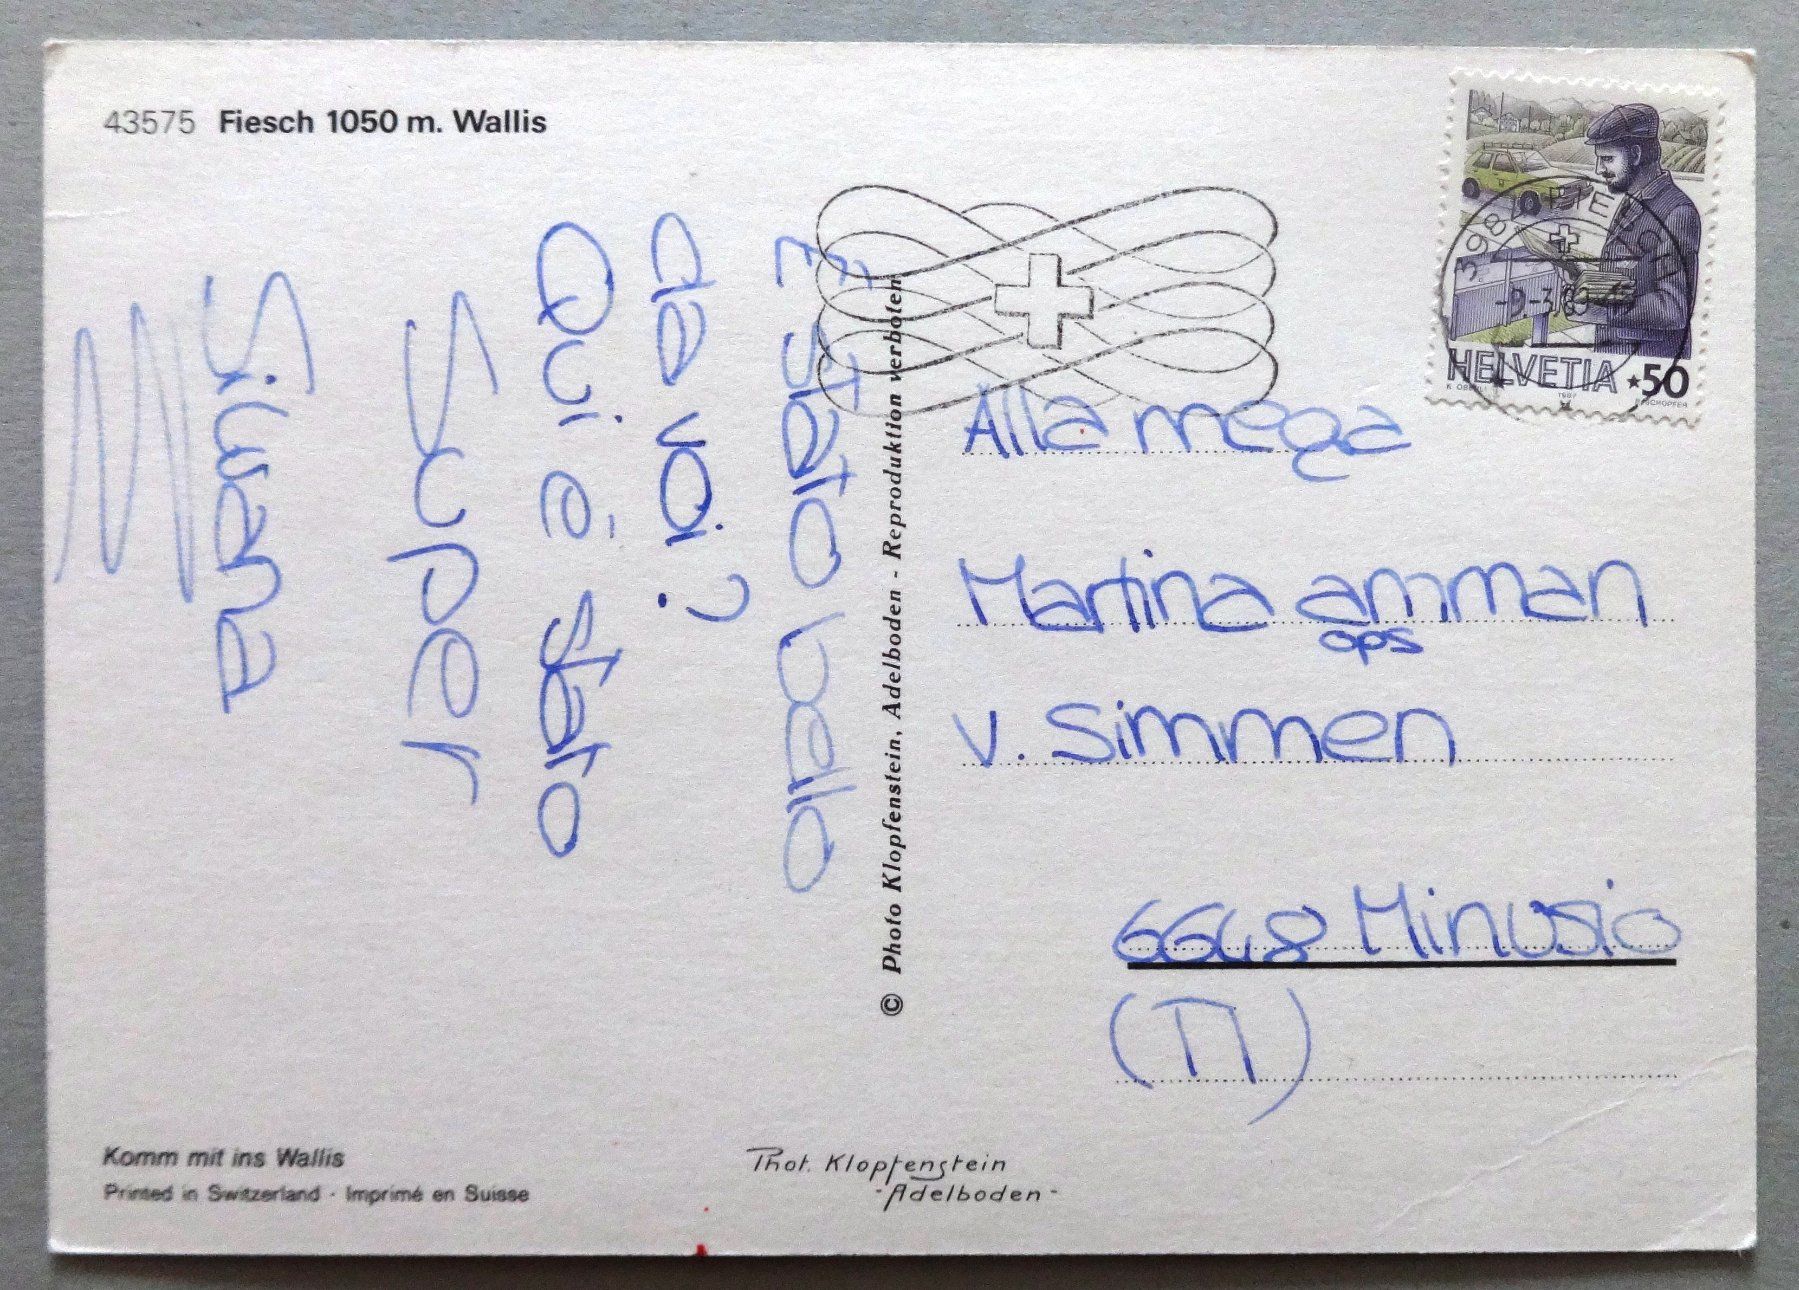 43575 Fiesch 1050 m. Wallis
È stato bello
da voi?
Qui è stato
Super
Simona
© Photo Klopfenstein, Adelboden - Reproduktion verboten
HELVETIA ★50
1987
Alla mega
Martina amman
ops
v. Simmen
6648 Minusio
(TI)
Komm mit ins Wallis
Printed in Switzerland · Imprimé en Suisse
Phot. Klopfenstein
- Adelboden -